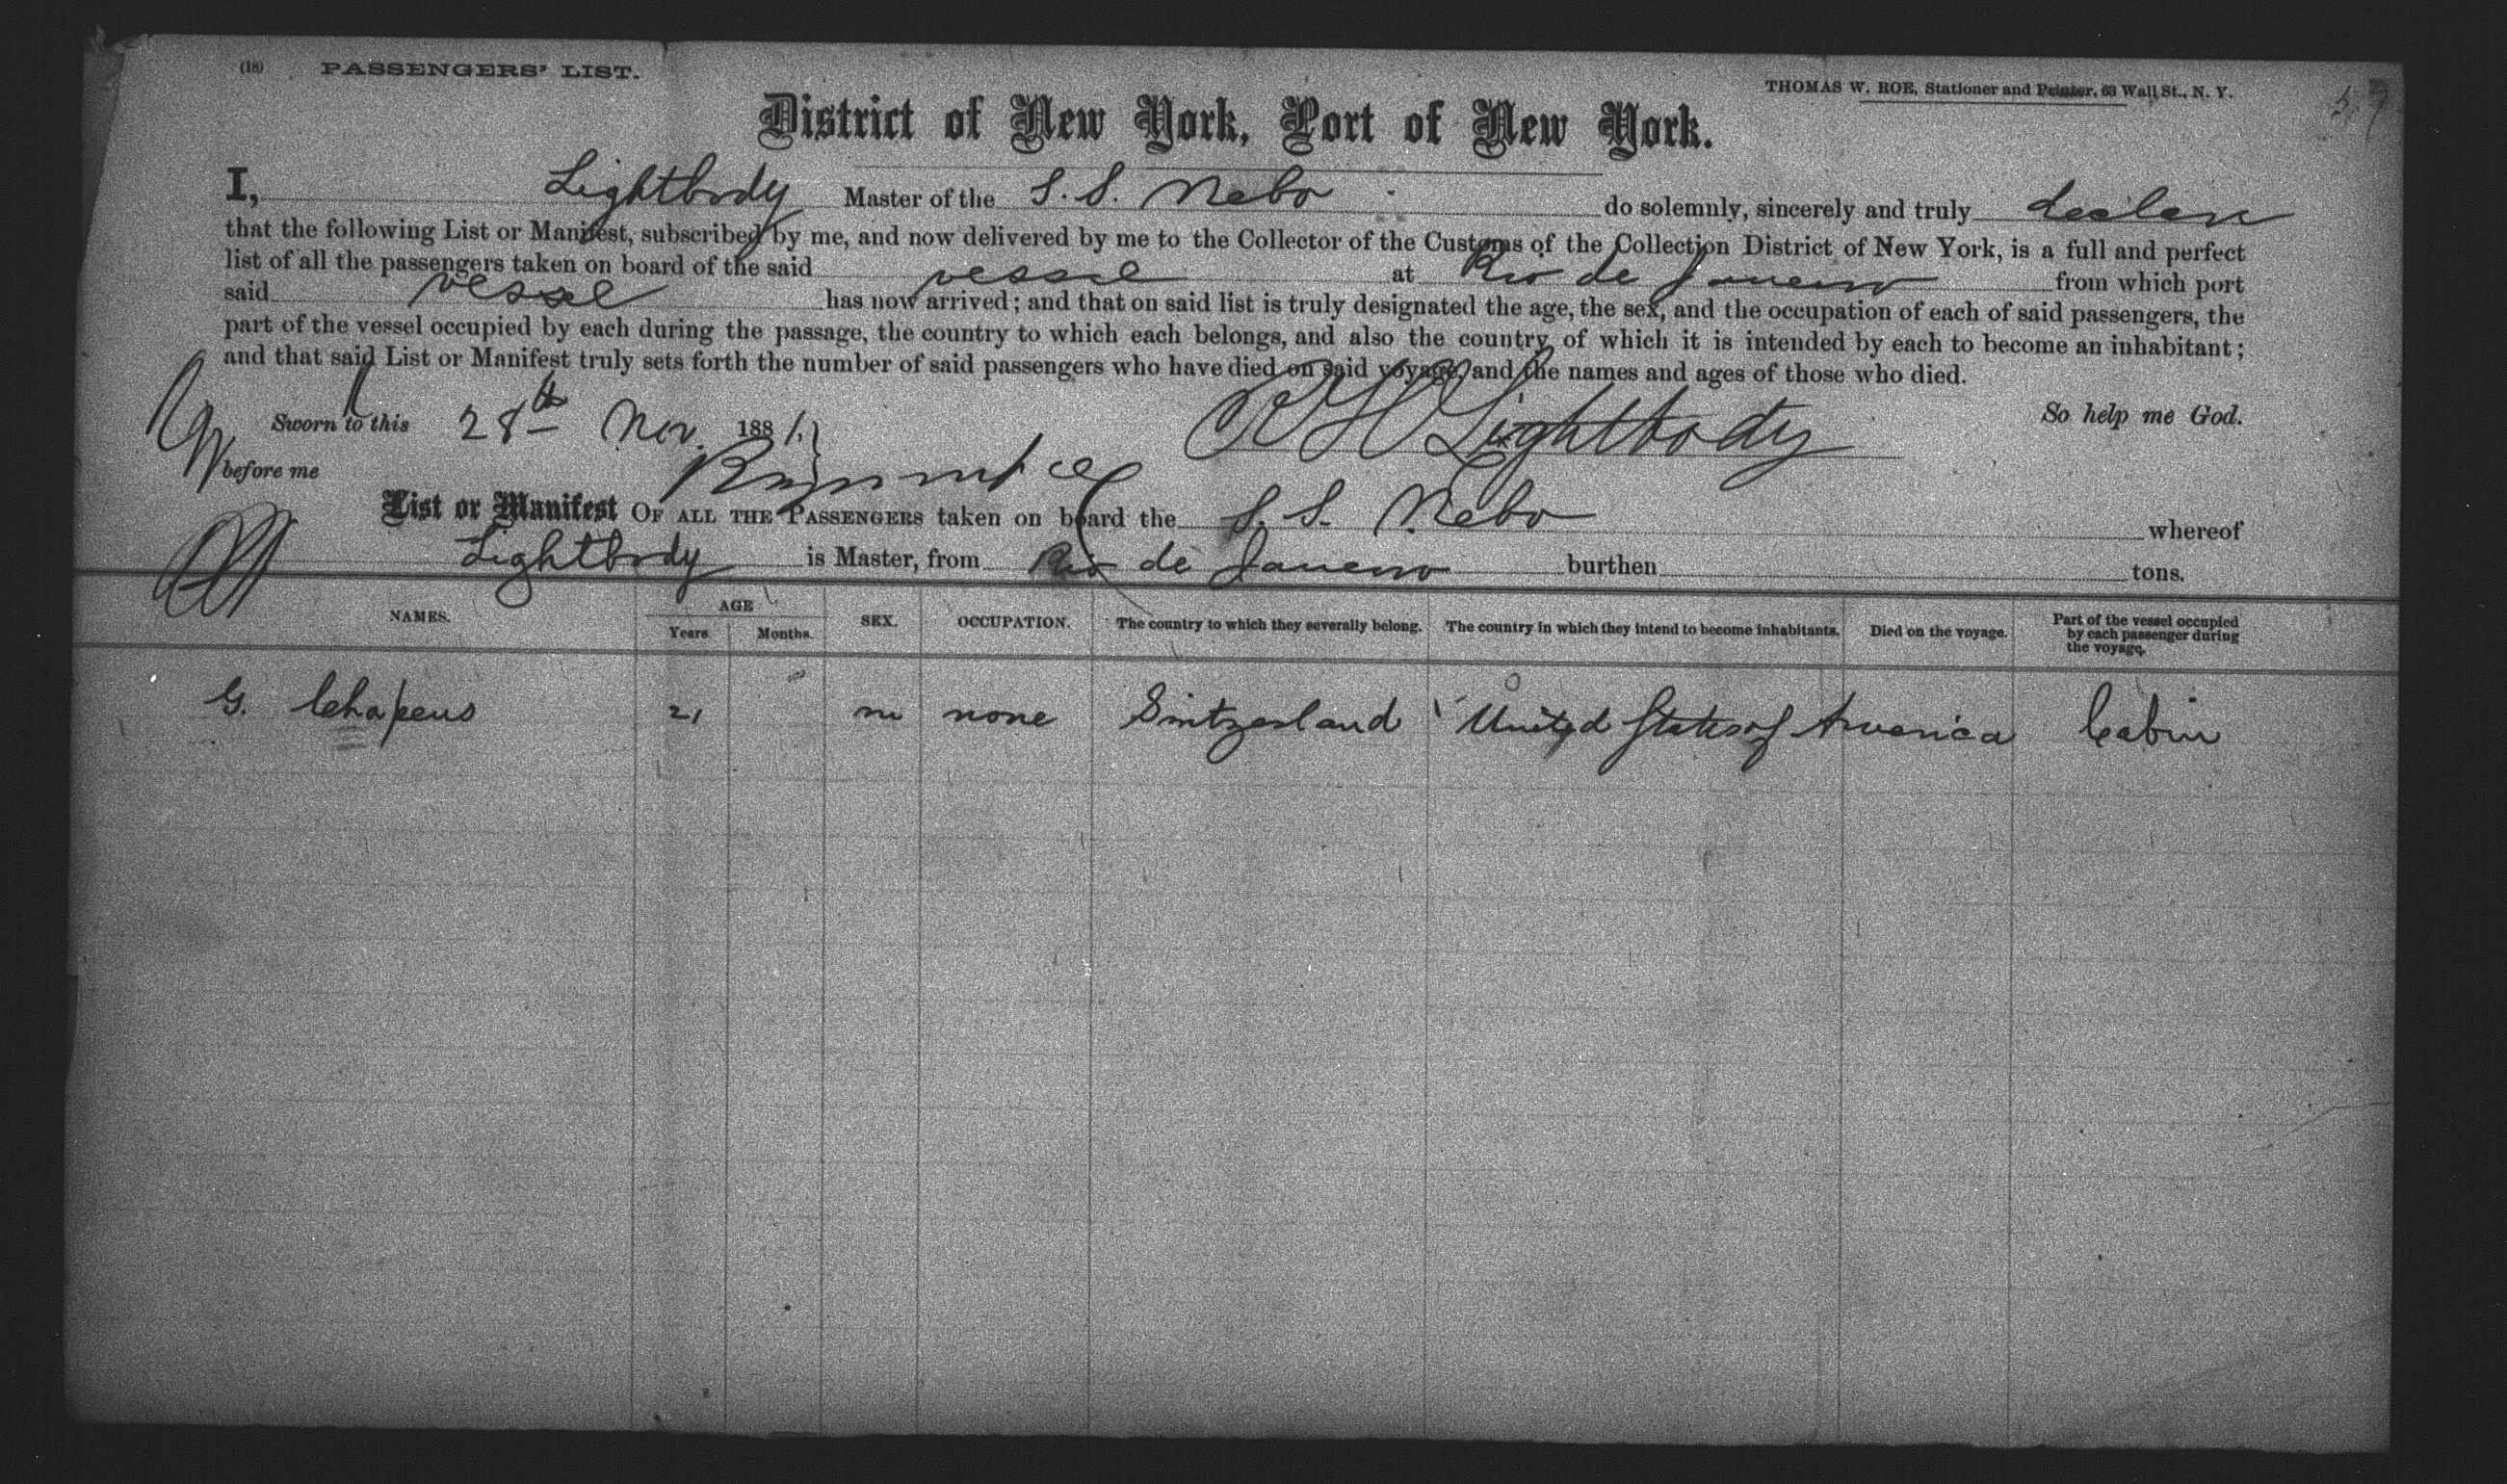 (18) PASSENGERS' LIST.
THOMAS W. ROE, Stationer and Printer, 63 Wall St., N. Y.
District of New York, Port of New York.
I, Lightbody Master of the S. S. Nebo do solemnly, sincerely and truly declare
that the following List or Manifest, subscribed by me, and now delivered by me to the Collector of the Customs of the Collection District of New York, is a full and perfect
list of all the passengers taken on board of the said vessel at Rio de Janeiro from which port
said vessel has now arrived; and that on said list is truly designated the age, the sex, and the occupation of each of said passengers, the
part of the vessel occupied by each during the passage, the country to which each belongs, and also the country of which it is intended by each to become an inhabitant;
and that said List or Manifest truly sets forth the number of said passengers who have died on said voyage, and the names and ages of those who died.
So help me God.
Sworn to this 28th Nov. 1881. Lightbody
before me
List or Manifest OF ALL THE PASSENGERS taken on board the S. S. Nebo whereof
Lightbody is Master, from Rio de Janeiro burthen tons.
NAMES. AGE Years. Months. SEX. OCCUPATION. The country to which they severally belong. The country in which they intend to become inhabitants. Died on the voyage. Part of the vessel occupied by each passenger during the voyage.
G. Chapeus 21 m none Switzerland United States of America Cabin